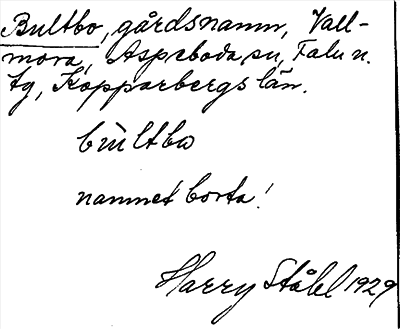 Bultbo, gårdsnamn, Vall-
mora, Aspeboda sn, Falu n.
tg, Kopparbergs län.
bùltbo
namnet borta!
Harry Ståhl 1929